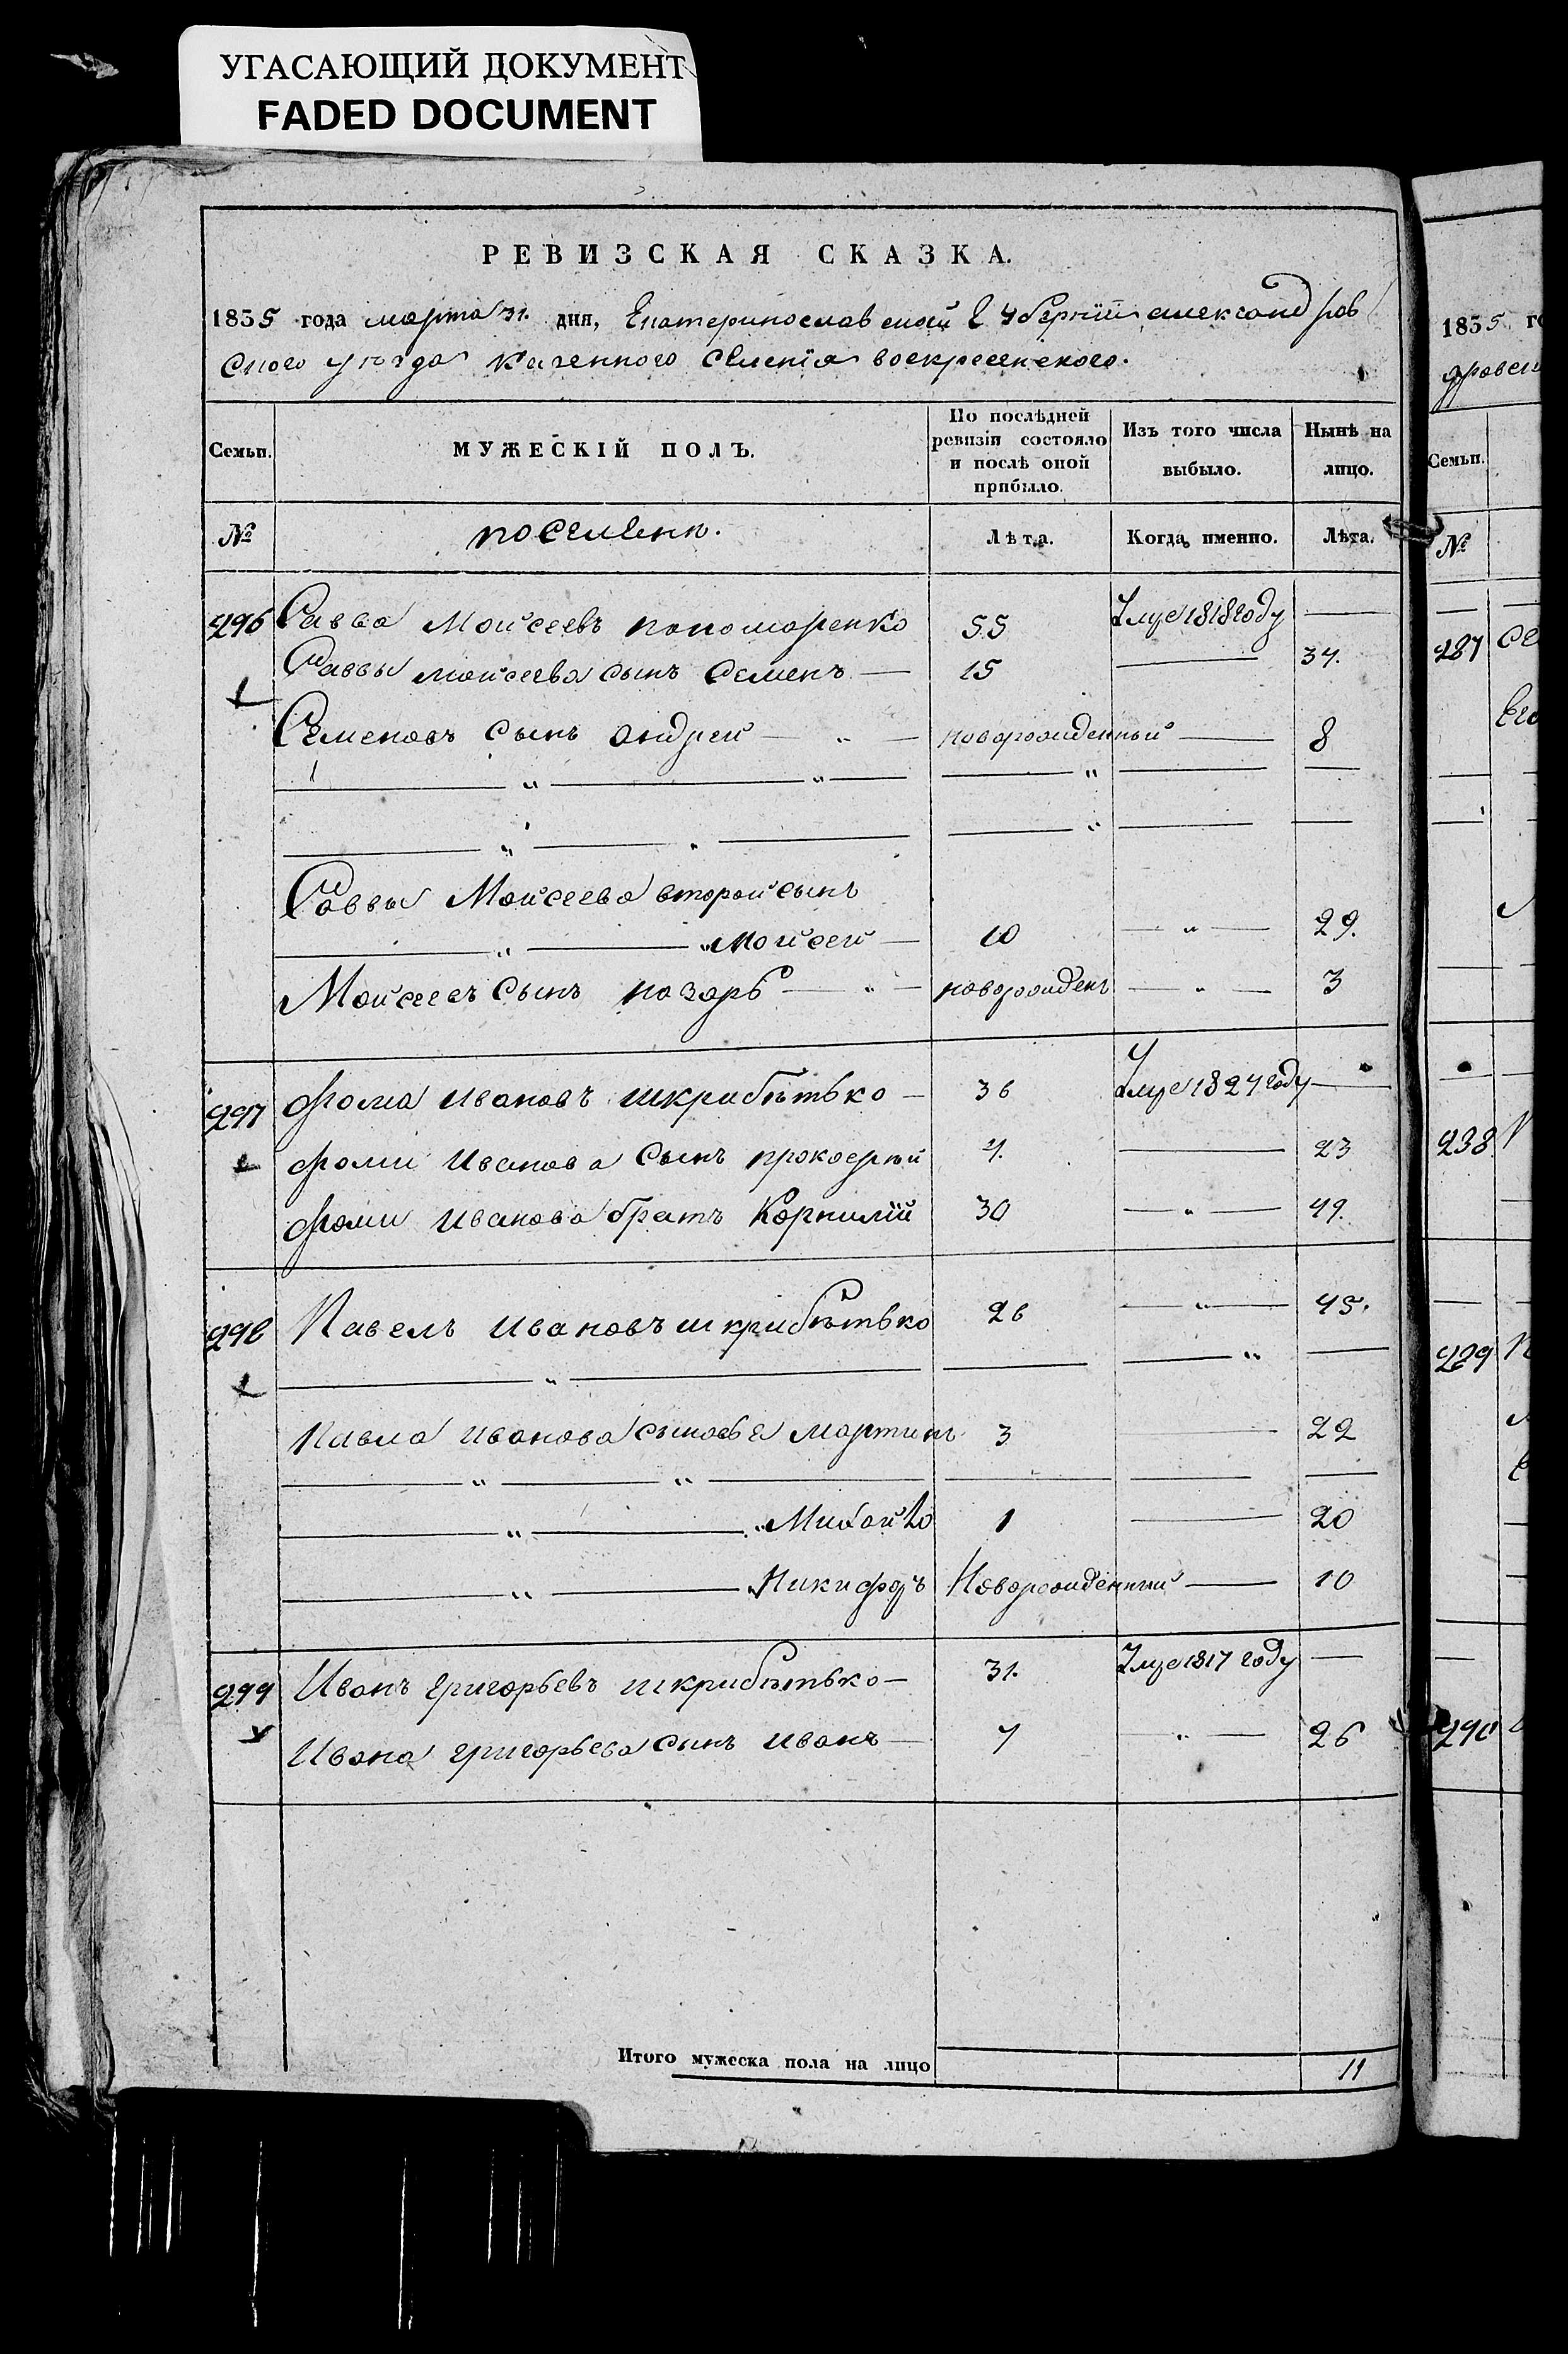 УГАСАЮЩИЙ ДОКУМЕНТ
FADED DOCUMENT
РЕВИЗСКАЯ СКАЗКА.
1835 года марта 31. дня, Екатеринославской Губерніи александров
ского уѣзда казенного селенія воскресенского.
Семьи. МУЖЕСКІЙ ПОЛЪ. По послѣдней ревизіи состояло и послѣ оной прибыло. Изъ того числа выбыло. Нынѣ на лицо.
№ поселянъ. Лѣта. Когда именно. Лѣта.
296 Савва Моисеевъ пономаренко 55 Умре 1818 году —
Саввы моисеева сынъ Семенъ — 15 — 34.
Семеновъ сынъ андрей — новорожденный — 8
Саввы Моисеева второй сынъ
Мойсей — 10 — 29.
Моисеевъ сынъ назарь — новорожден — 3
297 Фома Ивановъ шкрибѣтько — 36 Умре 1824 году —
Фоми Иванова Сынъ прокофѣй 4. — 23
Фоми Иванова братъ Корнилій 30 — 49.
298 Павелъ Ивановъ шкрибѣтько 26 — 45.
Павла Иванова сыновья мартинъ 3 — 22
Михайло 1 — 20
Никифоръ Новорожденный — 10
299 Иванъ Григорьевъ шкрибѣтько — 31. Умре 1817 году —
Ивана григорьева сынъ иванъ — 7 — 26
Итого мужеска пола на лицо 11
1835 го
Семьи.
№
287
238
290